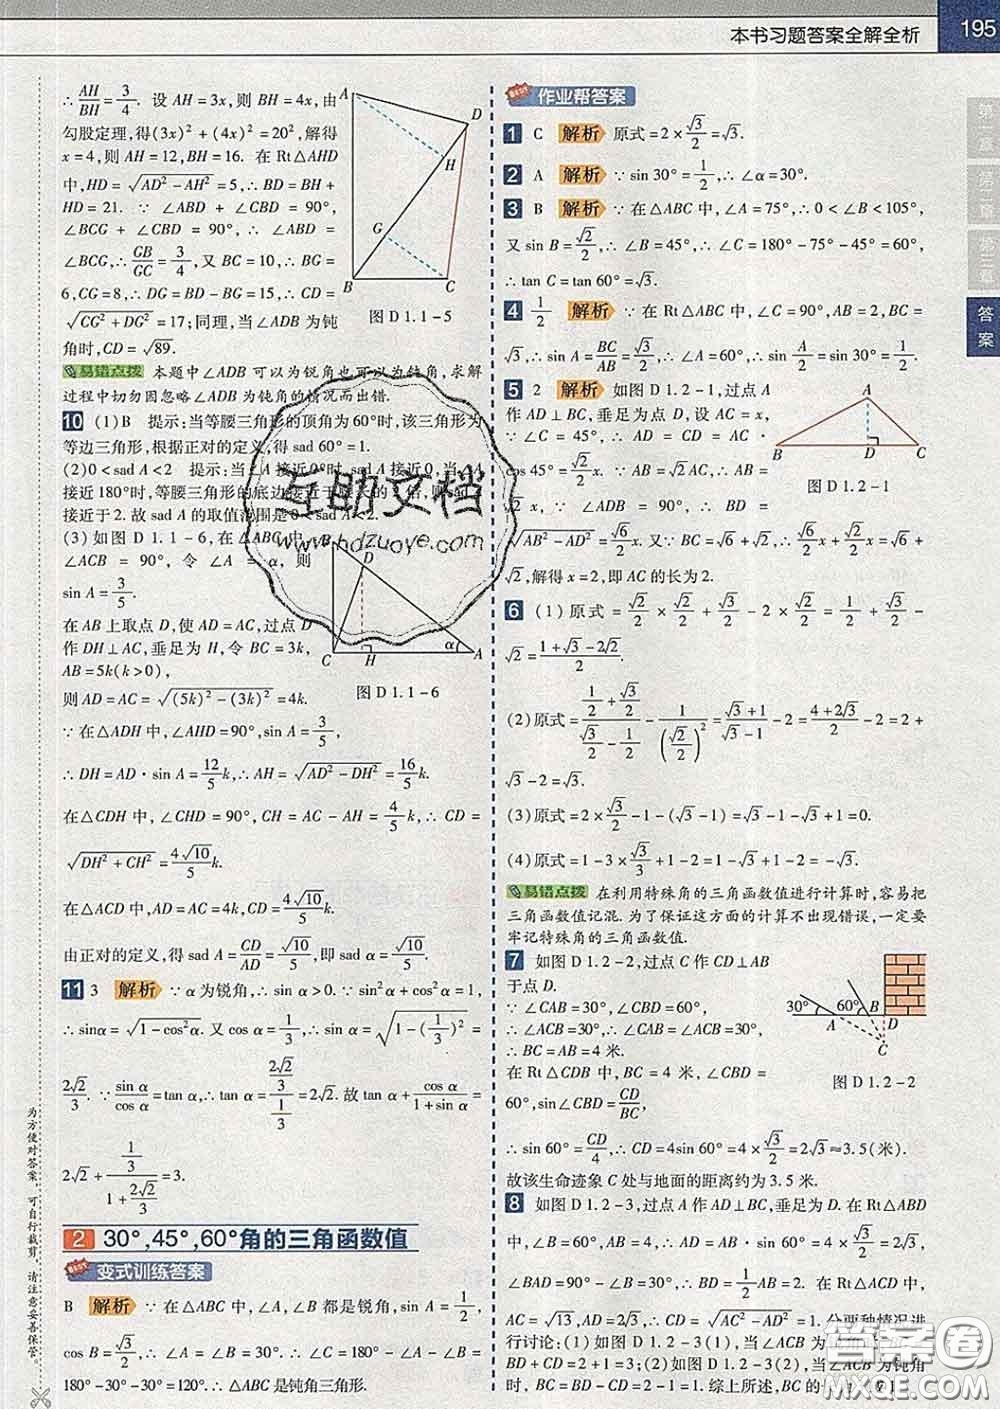 本书习题答案全解全析
195
∴ AH/BH = 3/4. 设 AH=3x,则 BH=4x,由
勾股定理,得(3x)²+(4x)²=20²,解得
x=4,∴ AH=12,BH=16. 在 Rt△AHD
中,HD=√(AD²-AH²)=5,∴ BD=BH+
HD=21. ∵ ∠ABD+∠CBD=90°,
∠BCG+∠CBD=90°,∴ ∠ABD=
∠BCG,∴ GB/GC=3/4,又 BC=10,∴ BG=
6,CG=8,∴ DG=BD-BG=15,∴ CD=
√(CG²+DG²)=17;同理,当∠ADB 为钝
角时,CD=√89.
A
D
H
G
B
C
图 D 1.1-5
易错点拨 本题中∠ADB 可以为锐角也可以为钝角,求解
过程中切勿因忽略∠ADB 为钝角的情况而出错.
10 (1)B 提示:当等腰三角形的顶角为60°时,该三角形为
等边三角形,根据正对的定义,得 sad 60°=1.
(2)0<sad A<2 提示:当∠A 接近0°时,sad A 接近0,当∠A
接近180°时,等腰三角形的底边接近于腰长的2倍,则 sad A
接近于2.故 sad A 的取值范围是0<sad A<2.
(3)如图 D 1.1-6,在△ABC 中,
∠ACB=90°,令∠A=α,则
sin A=3/5.
在 AB 上取点 D,使 AD=AC,过点 D
作 DH⊥AC,垂足为 H,令 BC=3k,
AB=5k(k>0),
则 AD=AC=√((5k)²-(3k)²)=4k.
B
D
C
H
α
A
图 D 1.1-6
∵ 在△ADH 中,∠AHD=90°,sin A=3/5,
∴ DH=AD·sin A=12/5 k,∴ AH=√(AD²-DH²)=16/5 k.
在△CDH 中,∠CHD=90°,CH=AC-AH=4/5 k,∴ CD=
√(DH²+CH²)=4√10/5 k.
在△ACD 中,AD=AC=4k,CD=4√10/5 k.
由正对的定义,得 sad A=CD/AD=√10/5,即 sad α=√10/5.
11 3 解析 ∵ α 为锐角,∴ sin α>0. ∵ sin²α+cos²α=1,
∴ sinα=√(1-cos²α). 又 cos α=1/3,∴ sin α=√(1-(1/3)²)=
2√2/3. ∵ sin α/cos α=tan α,∴ tan α=(2√2/3)/(1/3)=2√2. 故 tan α+cos α/(1+sin α)=
2√2+(1/3)/(1+2√2/3)=3.
2 30°,45°,60°角的三角函数值
变式训练答案
B 解析 ∵ 在△ABC 中,∠A,∠B 都是锐角,sin A=1/2,
cos B=√3/2,∴ ∠A=∠B=30°,∴ ∠C=180°-∠A-∠B=
180°-30°-30°=120°.∴ △ABC 是钝角三角形.
作业帮答案
1 C 解析 原式=2×√3/2=√3.
2 A 解析 ∵ sin 30°=1/2,∴ ∠α=30°.
3 B 解析 ∵ 在△ABC 中,∠A=75°,∴ 0<∠B<105°,
又 sin B=√2/2,∴ ∠B=45°,∴ ∠C=180°-75°-45°=60°,
∴ tan C=tan 60°=√3.
4 1/2 解析 ∵ 在 Rt△ABC 中,∠C=90°,AB=2,BC=
√3,∴ sin A=BC/AB=√3/2,∴ ∠A=60°,∴ sin A/2=sin 30°=1/2.
5 2 解析 如图 D 1.2-1,过点 A
作 AD⊥BC,垂足为点 D,设 AC=x,
∵ ∠C=45°,∴ AD=CD=AC·
cos 45°=√2/2 x. ∵ AB=√2 AC,∴ AB=
√2 x,∵ ∠ADB=90°,∴ BD=
√(AB²-AD²)=√6/2 x. 又∵ BC=√6+√2,∴ √6/2 x+√2/2 x=√6+
√2,解得 x=2,即 AC 的长为2.
A
B
D
C
图 D 1.2-1
6 (1)原式=√2/2×√2/2+√3/2-2×√2/2=1/2+√3/2-
√2=(1+√3-2√2)/2.
(2)原式=(1/2+√3/2)/(√3/2-1/2)-1/(√2/2)²=(√3+1)/(√3-1)-2=(4+2√3)/2-2=2+
√3-2=√3.
(3)原式=2×√3/2-1-(√3-1)=√3-1-√3+1=0.
(4)原式=1-3×√3/3+1-2=1-√3+1-2=-√3.
易错点拨 在利用特殊角的三角函数值进行计算时,容易把
三角函数值记混.为了保证这方面的计算不出现错误,一定要
牢记特殊角的三角函数值.
7 如图 D 1.2-2,过点 C 作 CD⊥AB
于点 D.
∵ ∠CAB=30°,∠CBD=60°,
∴ ∠ACB=30°,∴ ∠CAB=∠ACB=30°,
∴ BC=AB=4 米.
在 Rt△CDB 中,BC=4 米,∠CBD=
60°,sin∠CBD=CD/BC,
∴ sin 60°=CD/4,∴ CD=4sin 60°=4×√3/2=2√3≈3.5(米).
故该生命迹象 C 处与地面的距离约为3.5 米.
30°
60°
A
B
D
C
图 D 1.2-2
8 如图 D 1.2-3,过点 A 作 AD⊥BC,垂足为 D. 在 Rt△ABD
中,∵ ∠ABD=60°,AB=4,∴ AD=AB·sin 60°=4×√3/2=2√3,
∠BAD=90°-60°=30°,∴ BD=1/2 AB=2. 在 Rt△ACD 中,
AC=√13,AD=2√3,∴ CD=√(AC²-AD²)=1. 分两种情况进
行讨论:(1)如图 D 1.2-3(1),当∠ACB 为
BD+CD=2+1=3;(2)如图 D 1.2-3(2),当∠ACB 为钝角
时,BC=BD-CD=2-1=1. 综上所述,BC 的
第一章
第二章
第三章
答案
为方便对答案,可自行裁剪,请注意妥善保管。
互助文档
www.hdzuoye.com
答案圈
MXQE.COM